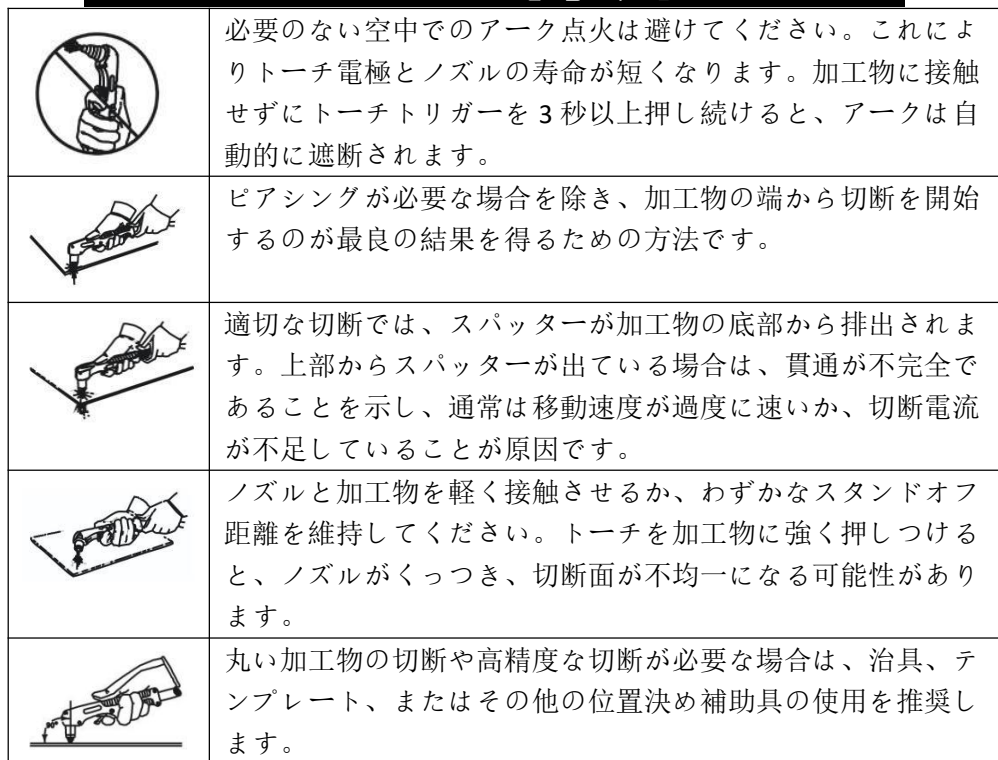 必要のない空中でのアーク点火は避けてください。これによ
りトーチ電極とノズルの寿命が短くなります。加工物に接触
せずにトーチトリガーを 3 秒以上押し続けると、アークは自
動的に遮断されます。
ピアシングが必要な場合を除き、加工物の端から切断を開始
するのが最良の結果を得るための方法です。
適切な切断では、スパッターが加工物の底部から排出されま
す。上部からスパッターが出ている場合は、貫通が不完全で
あることを示し、通常は移動速度が過度に速いか、切断電流
が不足していることが原因です。
ノズルと加工物を軽く接触させるか、わずかなスタンドオフ
距離を維持してください。トーチを加工物に強く押しつける
と、ノズルがくっつき、切断面が不均一になる可能性があり
ます。
丸い加工物の切断や高精度な切断が必要な場合は、治具、テ
ンプレート、またはその他の位置決め補助具の使用を推奨し
ます。